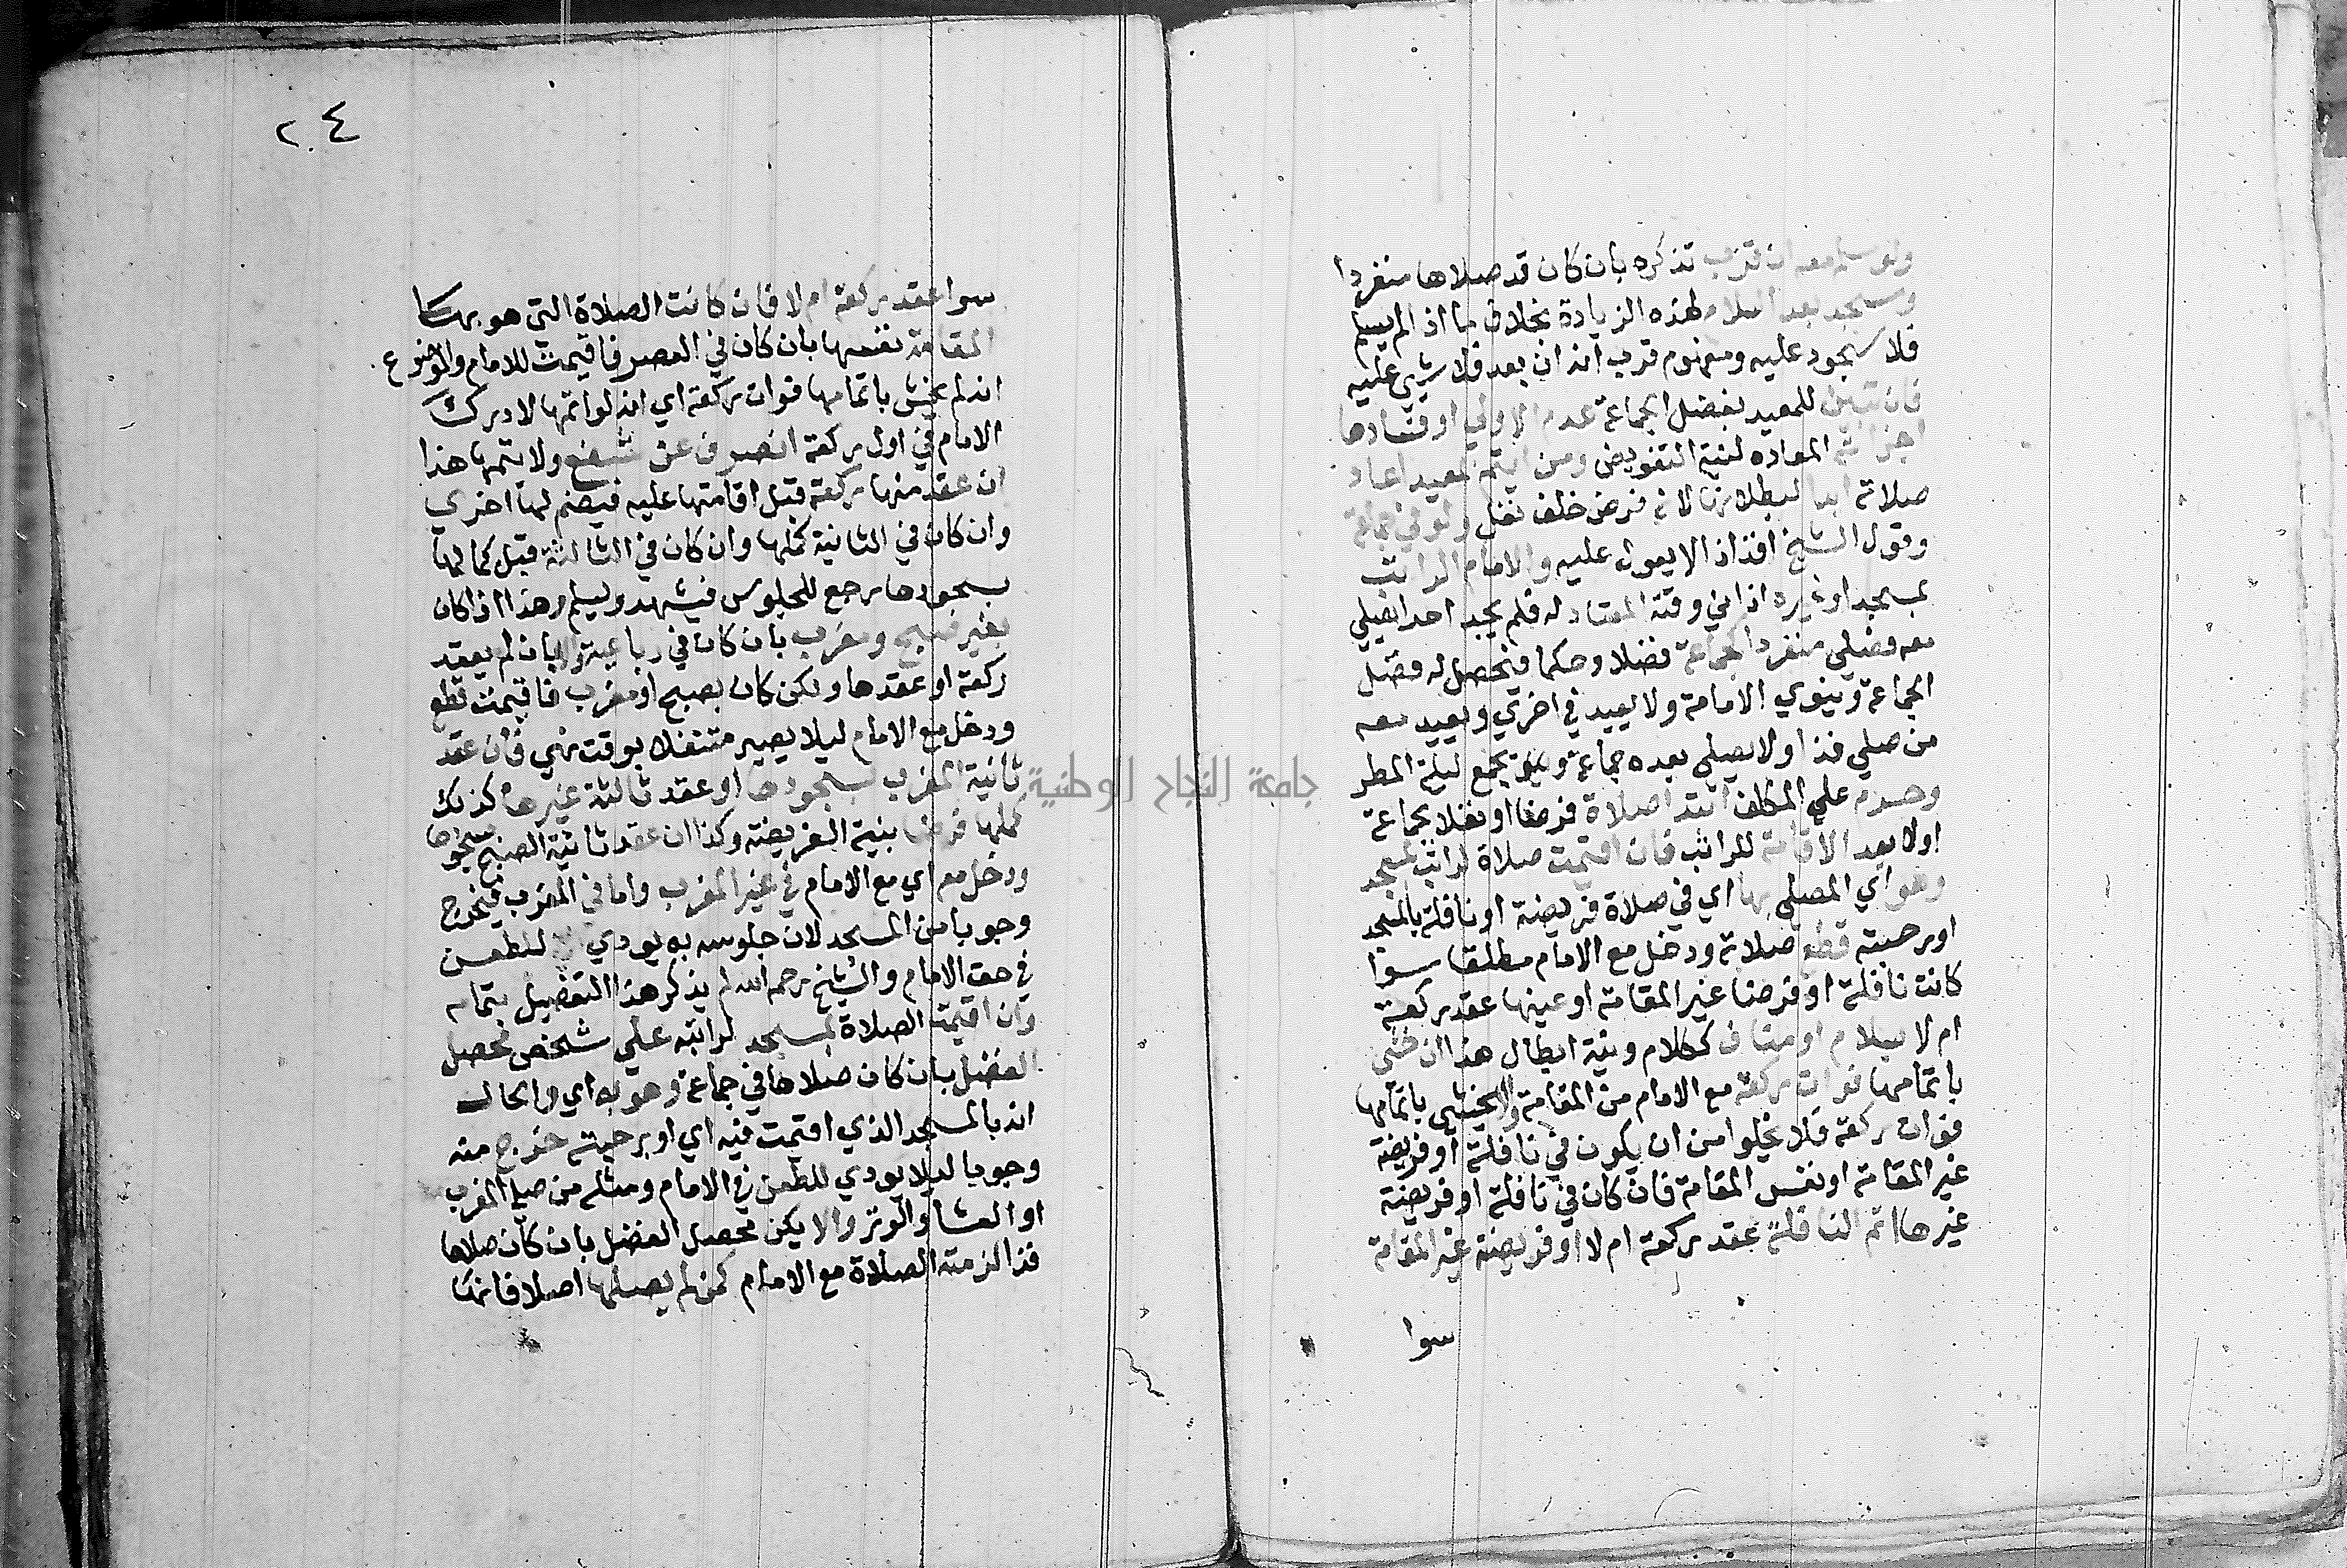 ولو سلم معه ان قرب تذكره بان كان قد صلاها منفردا
وسجد بعد السلام لهذه الزيادة بخلاف ما اذا لم يسلم
فلا سجود عليه ومفهوم قرب انه ان بعد فلا شي عليه
فان تبين للمعيد لفضل الجماعة عدم الاولي او فسادها
اجزاته المعاده لنية التفويض ومن ايتم بمعيد اعاد
صلاته ابدا لبطلانها لانه فرض خلف نفل ولو في جماعة
وقول الشيخ افذاذا لا يعول عليه والامام الراتب
بمسجد او غيره اذا في وقته المعتاد له فلم يجد احدا يصلي
معه فصلي منفردا كجماعة فضلا وحكما فيحصل له فضل
الجماعة وينوي الامامة ولا يعيد في اخري ويعيد معه
من صلي فذا ولا يصلي بعده جماعة ويجمع ليلة المطر
وحرم علي المكلف ابتدا صلاة فرضا او نفلا بجماعة
اولا بعد الاقامة للراتب فان اقيمت صلاة لراتب بمسجد
وهو اي المصلي بها اي في صلاة فريضة او نافلة بالمسجد
او رحبته قطع صلاته ودخل مع الامام مطلقا سوا
كانت نافلة او فرضا غير المقامة او عينها عقد ركعة
ام لا بسلام او مناف ككلام ونية ابطال هذا ان خشي
باتمامها فوات ركعة مع الامام من المقامة والا يخشي باتمامها
فوات ركعة فلا يخلوا من ان يكون في نافلة او فريضة
غير المقامة او نفس المقامة فان كان في نافلة او فريضة
غيرها اتم النافلة عقد ركعة ام لا او فريضة غير المقامة
سوا
٢٠٤
سوا عقد ركعة ام لا فان كانت الصلاة التي هو بها
المقامة نفسها بان كان في العصر فاقيمت للامام والموضوع
انه لم يخش باتمامها فوات ركعة اي انه لو اتمها لادرك
الامام في اول ركعة انصرف عن شفع ولا يتمها هذا
ان عقد منها ركعة قبل اقامتها عليه فيضم لها اخري
وان كان في الثانية كملها وان كان في الثالثة قبل كمالها
بسجودها رجع للجلوس فيتشهد ويسلم وهذا اذا كان
بغير صبح ومغرب بان كان في رباعية والا بان لم يعقد
ركعة او عقدها ولكن كان بصبح او مغرب فاقيمت قطع
ودخل مع الامام ليلا يصير متنفلا بوقت نهي فان عقد
ثانية المغرب بسجودها او عقد ثالثة غيرها كذلك
كملها فرضا بنية الفريضة وكذا ان عقد ثانية الصبح بسجودها
ودخل معه اي مع الامام في غير المغرب واما في المغرب فيخرج
وجوبا من المسجد لان جلوسه به يودي للطعن
في حق الامام والشيخ رحمه الله لم يذكر هذا التفصيل بتمامه
وان اقيمت الصلاة بمسجد لراتبه علي شخص محصل
الفضل بان كان صلاها في جماعة وهو به اي والحال
انه بالمسجد الذي اقيمت فيه اي او برحبته خرج منه
وجوبا ليلا يودي للطعن في الامام ومثله من صلي المغرب
او العشا والوتر والا يكن محصل الفضل بان كان صلاها
فذا لزمته الصلاة مع الامام كمن لم يصلها اصلا فانها
جامعة النجاح الوطنية